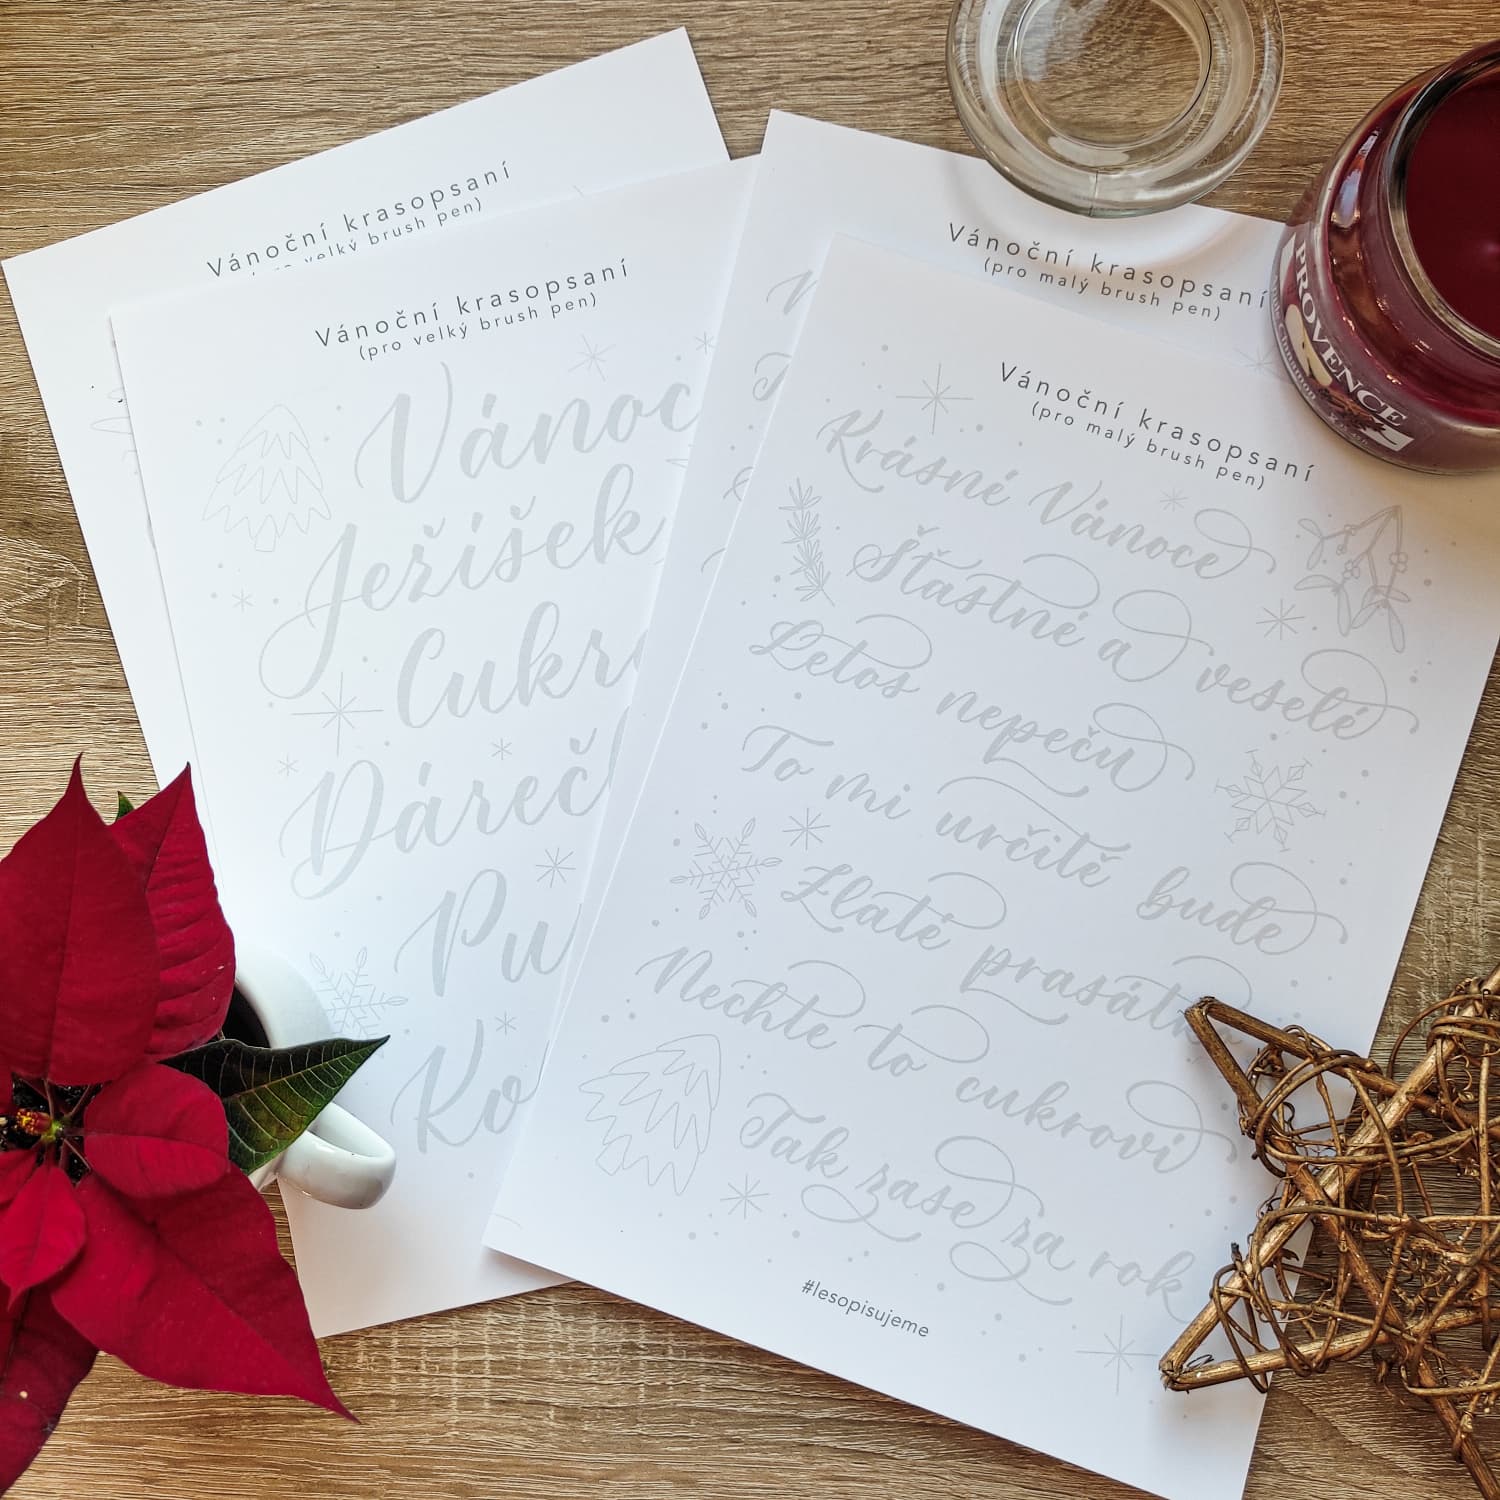 Vánoční krasopsaní
velký brush pen)
Vánoční krasopsaní
(pro velký brush pen)
Vánoc
Ježíšek
Cukr
Dáreč
Pu
Ko
Vánoční krasopsaní
(pro malý brush pen)
Vánoční krasopsaní
(pro malý brush pen)
Krásné Vánoce
Šťastné a veselé
Letos nepeču
To mi určitě bude
Zlaté prasátko
Nechte to cukroví
Tak zase za rok
#lesopisujeme
PROVENCE
Cinnamon